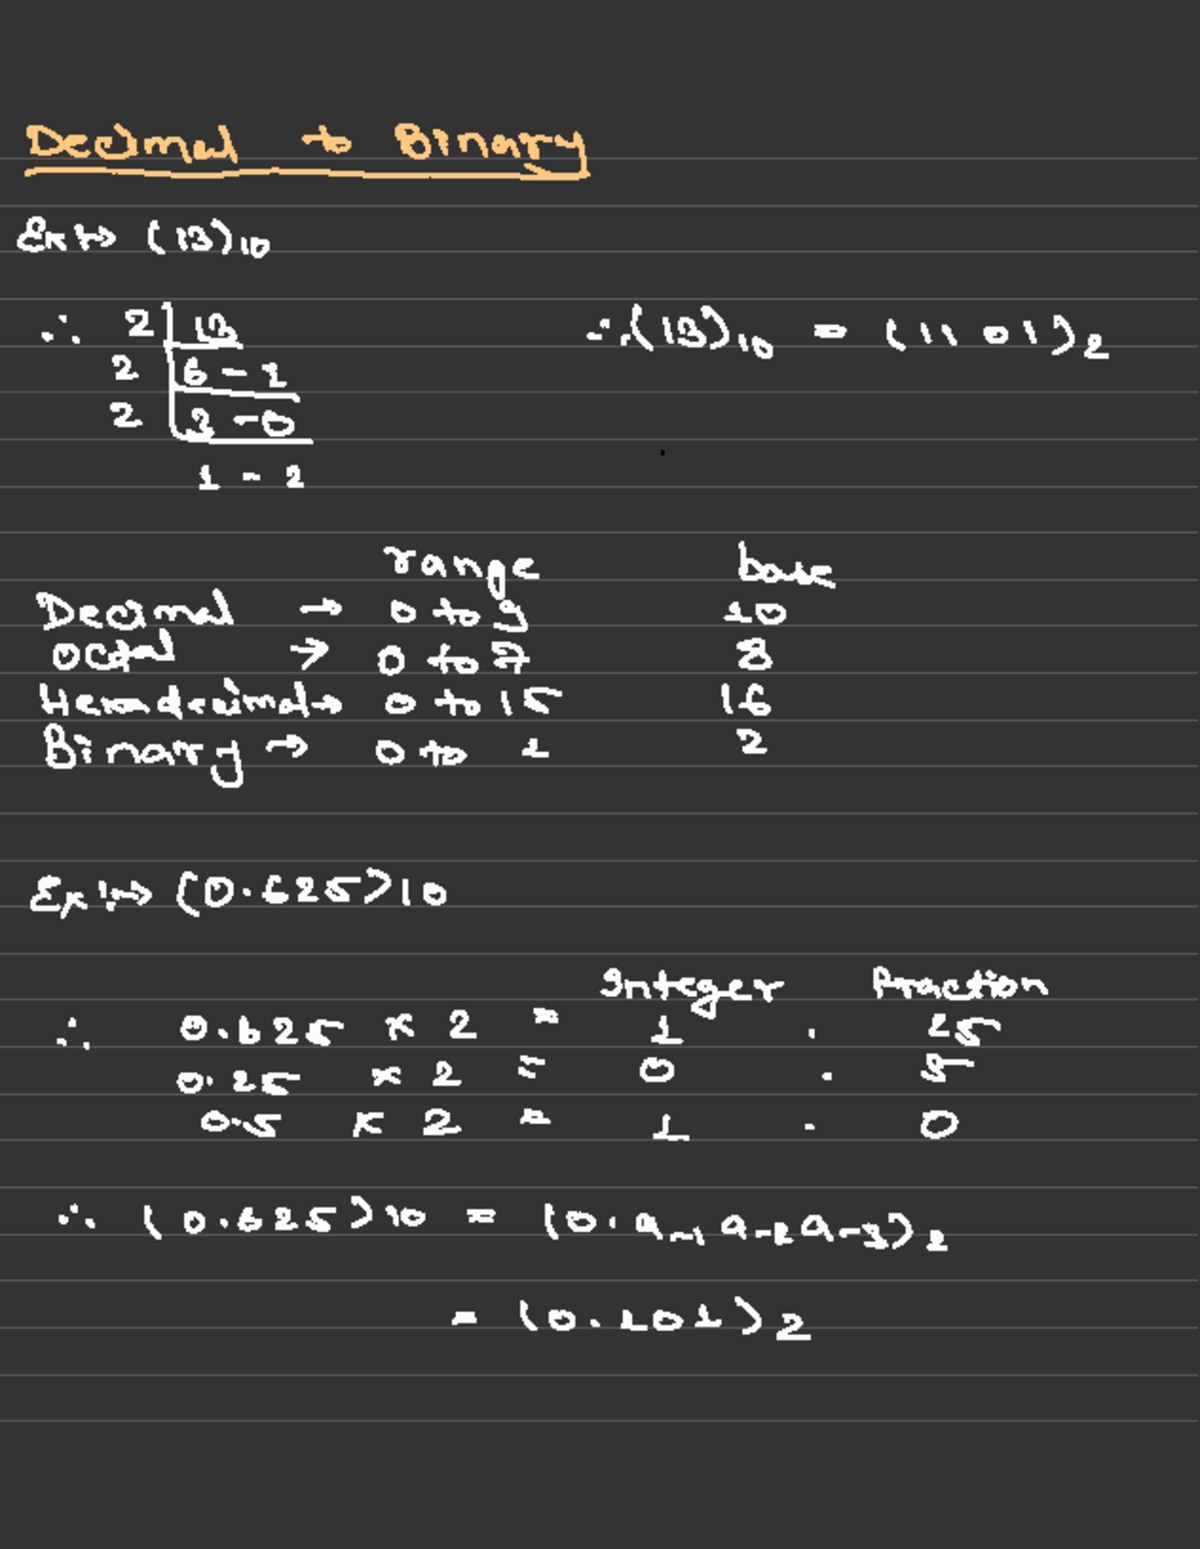 Decimal to Binary
Ex :→ (13)10
∴ 2 | 13
2 | 6 - 1
2 | 3 - 0
1 - 2
∴ (13)10 = (1101)2
range base
Decimal → 0 to 9 10
Octal → 0 to 7 8
Hexadecimal → 0 to 15 16
Binary → 0 to 1 2
Ex :→ (0.625)10
Integer . Fraction
∴ 0.625 × 2 = 1 . 25
0.25 × 2 = 0 . 5
0.5 × 2 = 1 . 0
∴ (0.625)10 = (0.a-1 a-2 a-3)2
= (0.101)2